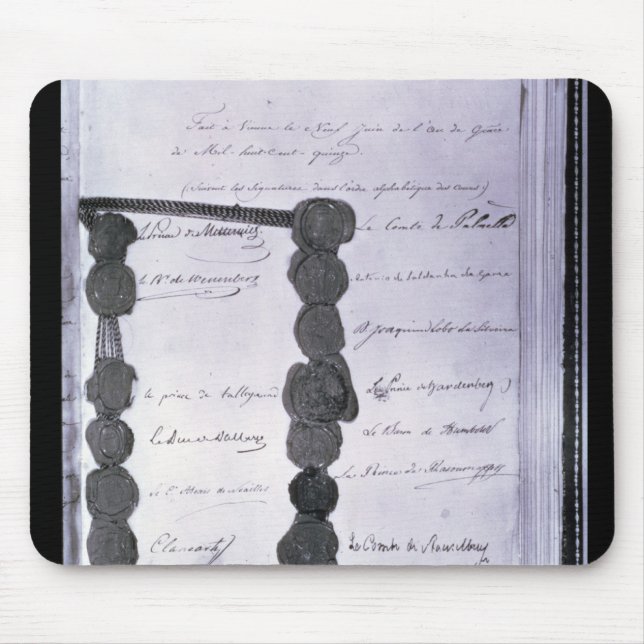 Fait à Vienne le Neuf Juin de l'an de Grâce
de Mil-huit-cent-quinze.
(Suivent les Signatures dans l'ordre alphabétique des Cours:)
Le Prince de Metternich
Le Bn. de Wessenberg
le prince de talleyrand
Le Duc de Dalberg
le Cte. Alexis de Noailles
Clancarty
Le Comte de Palmella
Antonio de Saldanha da Gama
D. Joaquim Lobo da Silveira
Le Prince de Hardenberg
Le Baron de Humboldt
Le Prince de Rasoumoffsky
Le Comte de